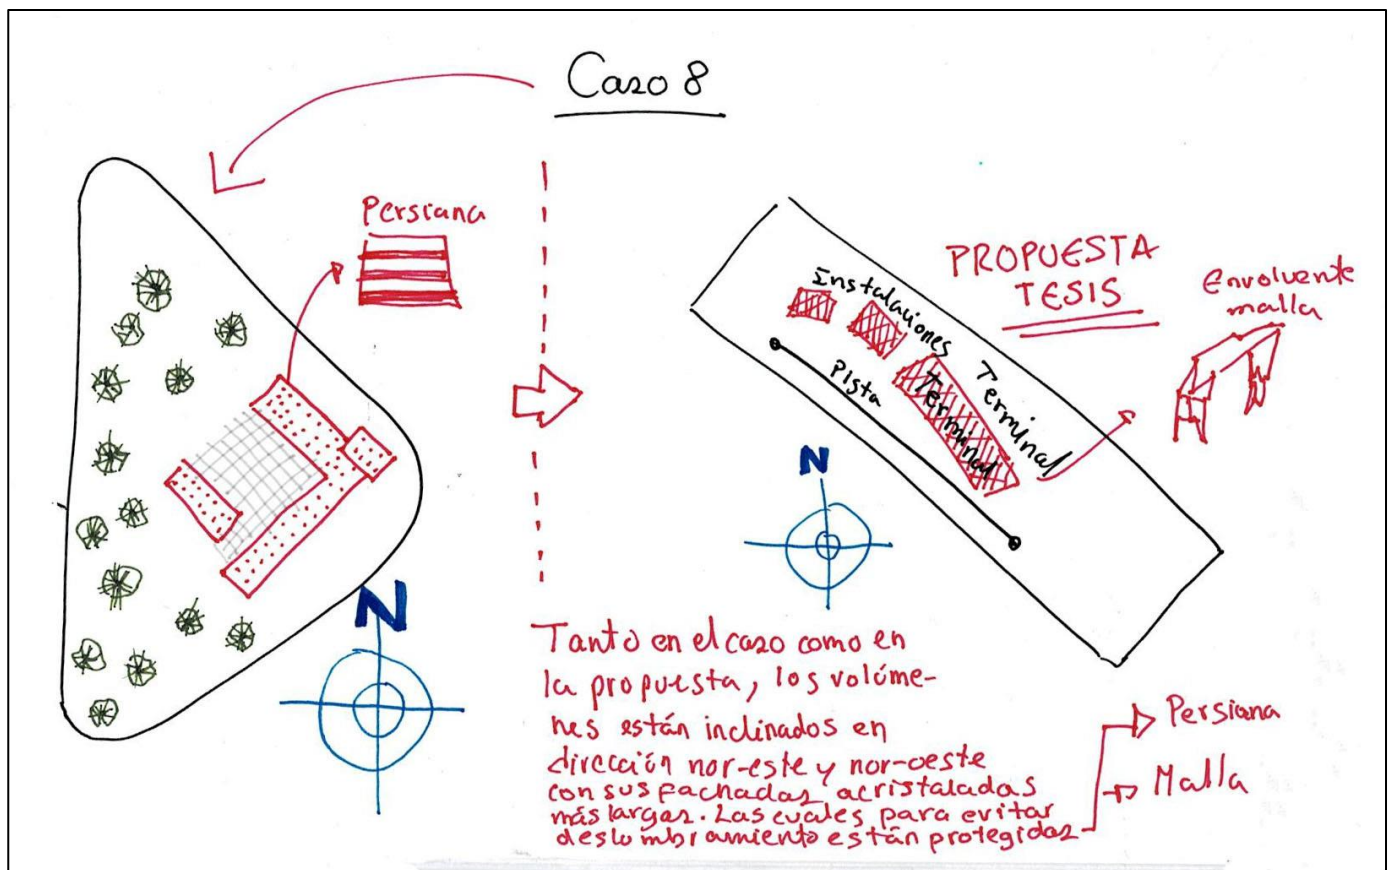 Caso 8
Persiana
PROPUESTA
TESIS
Envolvente
malla
Instalaciones
Terminal
Terminal
Pista
N
N
Tanto en el caso como en
la propuesta, los volúme-
nes están inclinados en
dirección nor-este y nor-oeste
con sus fachadas acristaladas
más largas. Las cuales para evitar
deslumbramiento están protegidas
Persiana
Malla